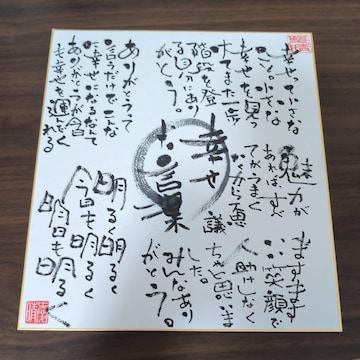 幸せって小さな
こと。小さな
幸せを見つ
けてまた一歩
階段を登
る自分にあり
がとう。
ありがとうって
言うだけでこんな
に幸せになるなんて
ありがとうが今日
も幸せを運んでくれる
魅力が
あれば、すべ
てがうまく
いくから不思
議
幸せ
な言葉
ますますます
いい笑顔で
人助けしなく
ちゃと思いま
した。
みんなあり
がとう。
明るく明るく
今日も明るく
明日も明るく